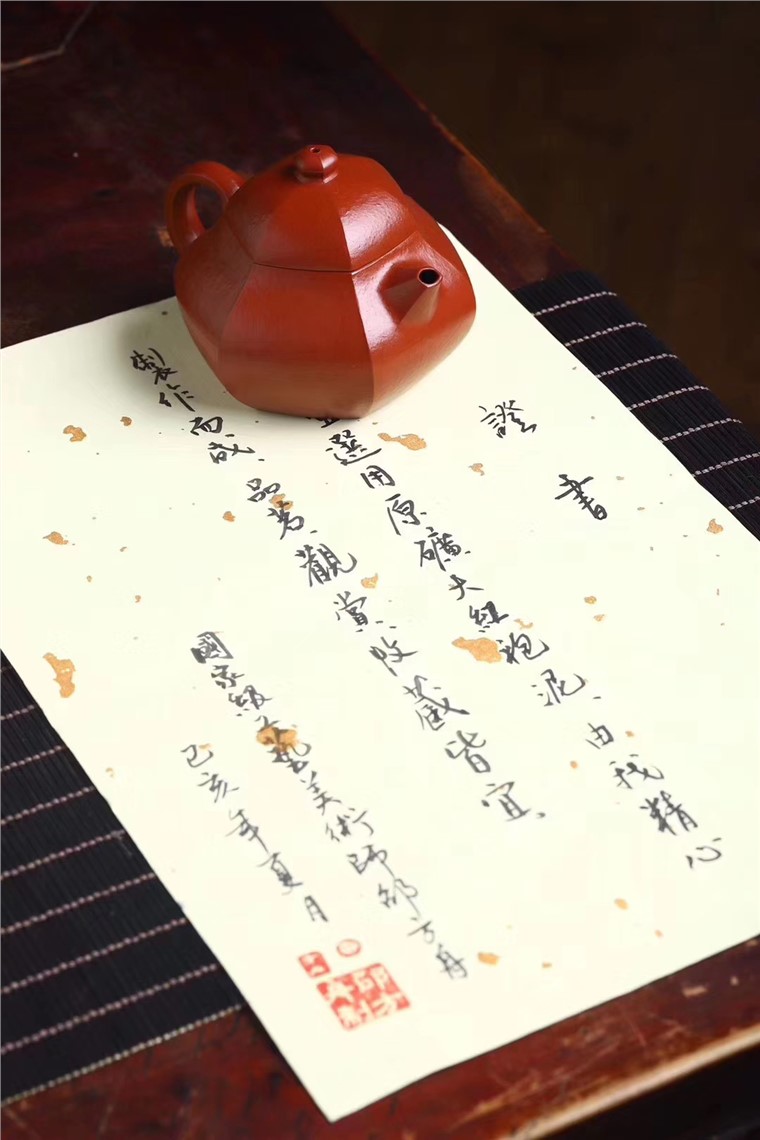 證書
選用原礦大紅袍泥、由我精心
製作而成、品茗、觀賞、收藏皆宜、
國家級工藝美術師邵方舟
己亥年夏月